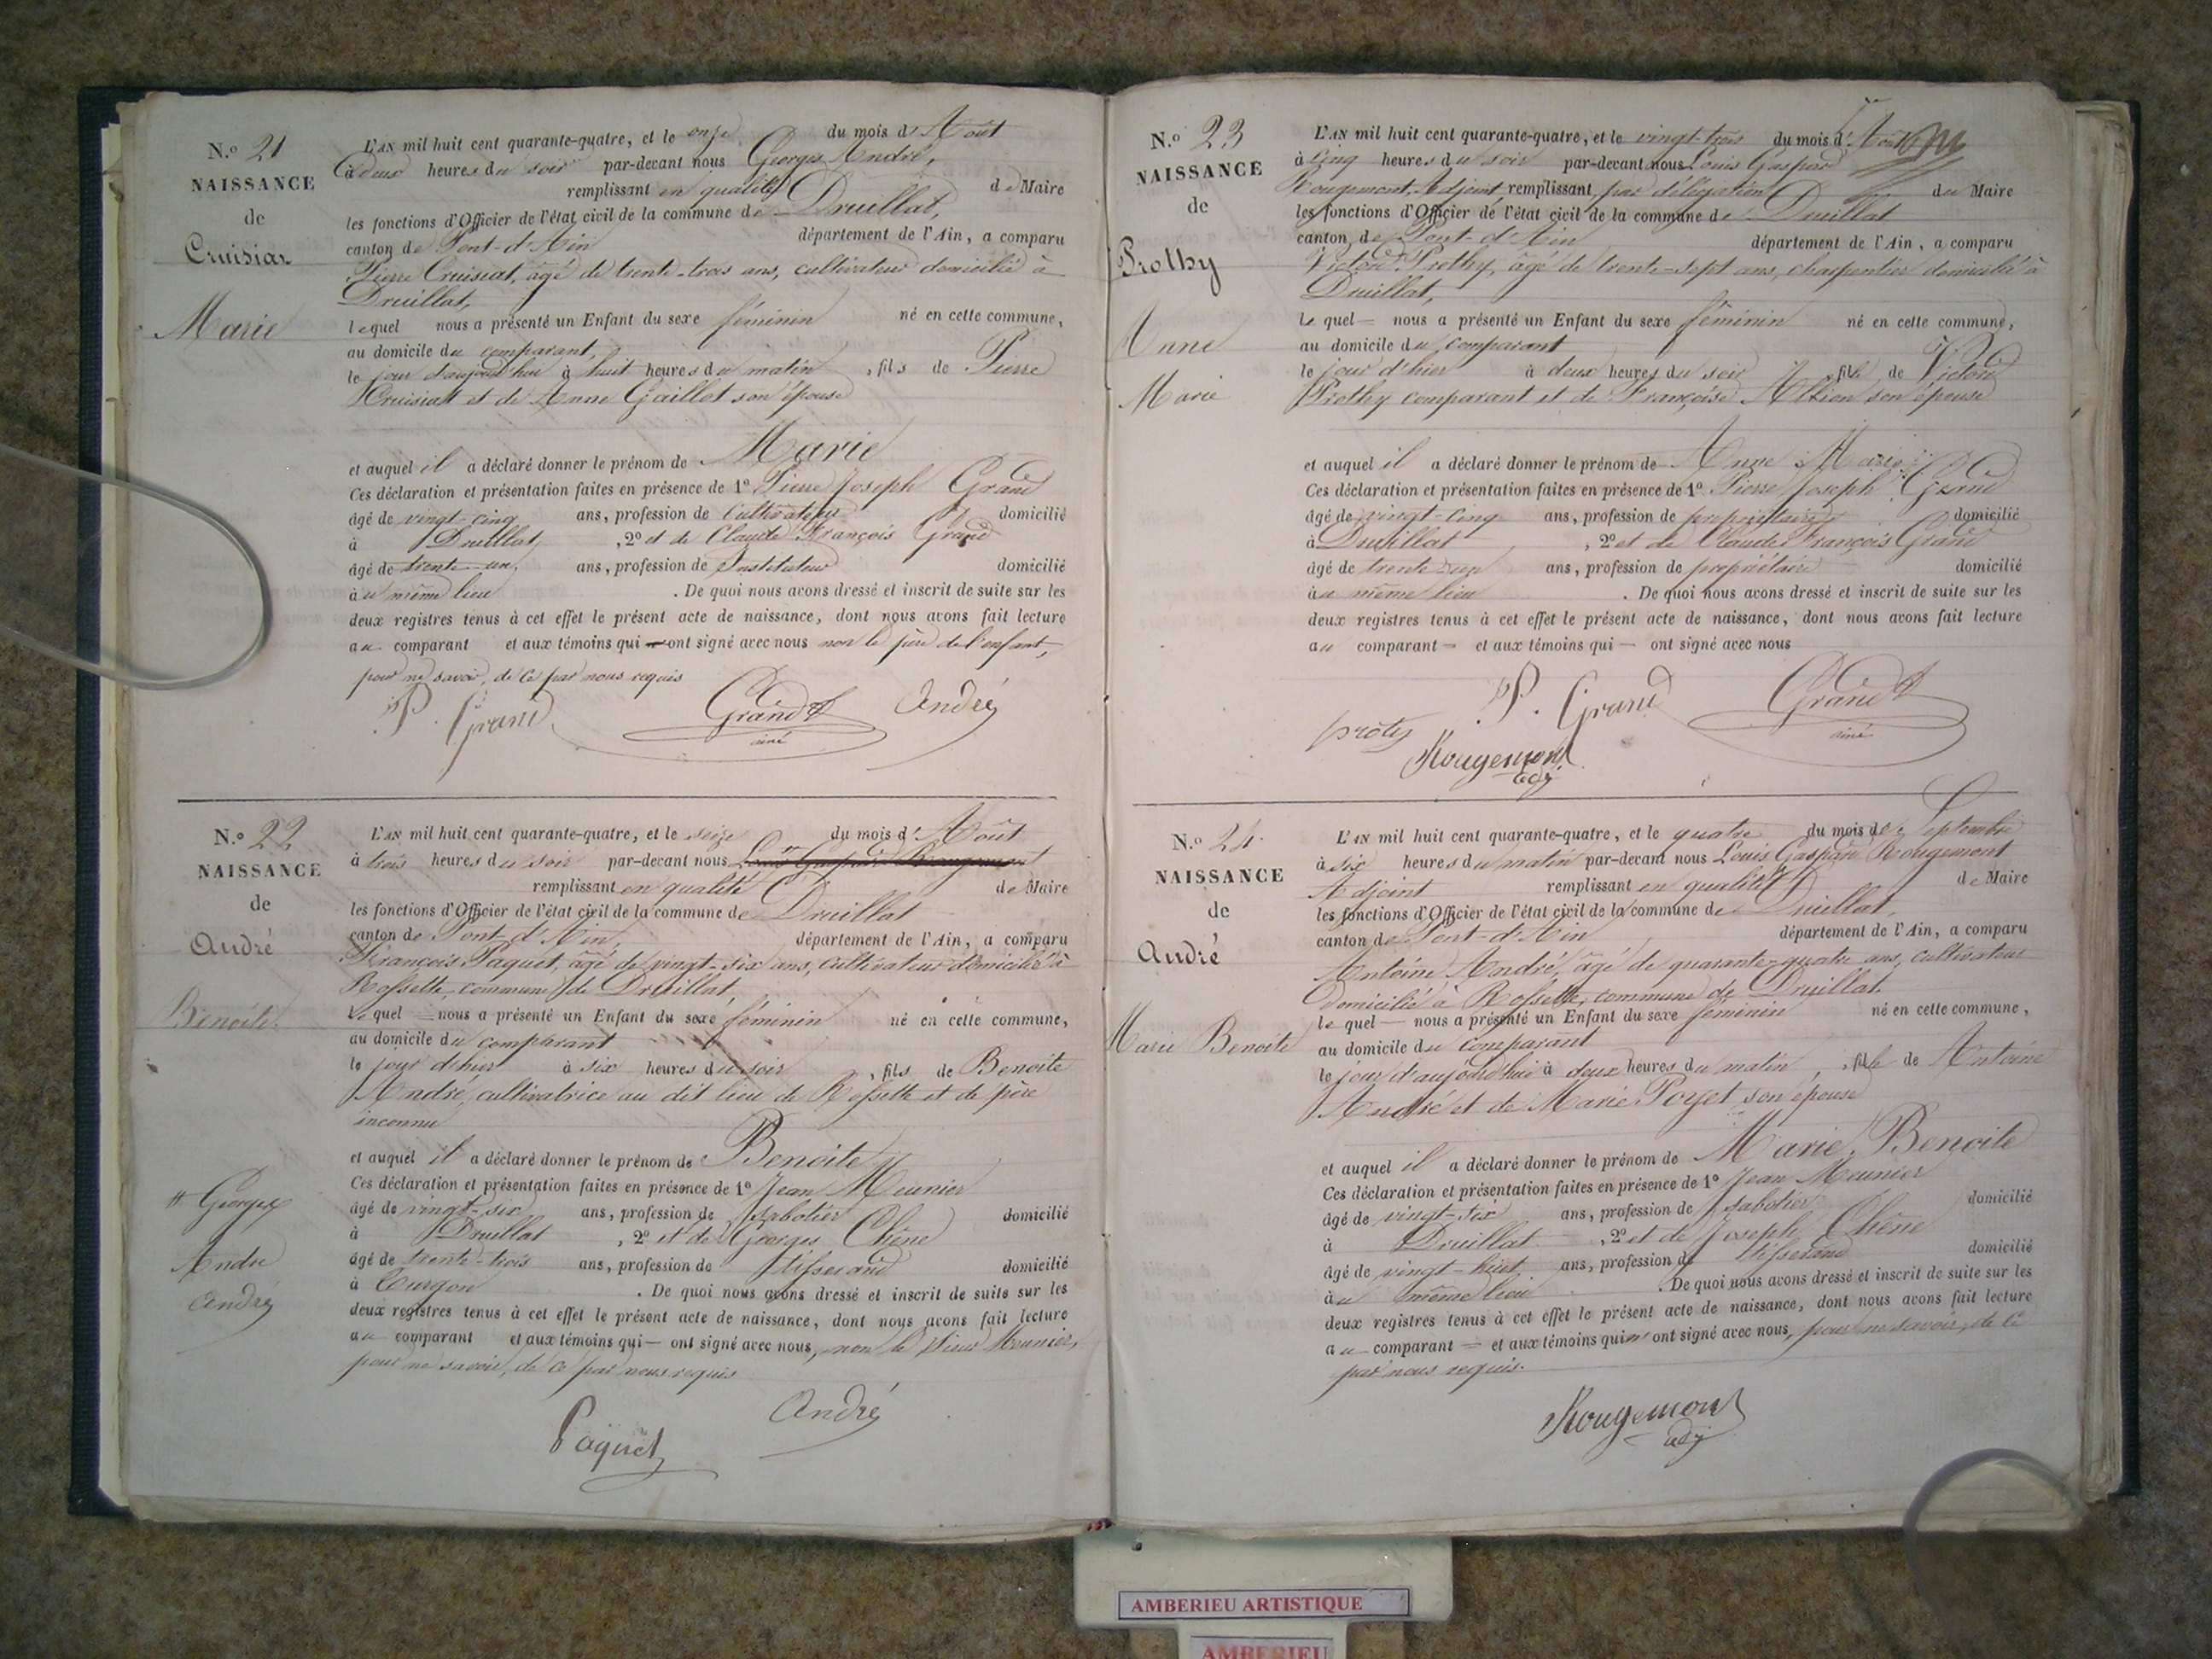 N.º 21
NAISSANCE
de
Cruisiat
Marie
L'AN mil huit cent quarante-quatre, et le onze du mois d'Août
à deux heures du soir par-devant nous Georges André,
remplissant en qualité de Maire
les fonctions d'Officier de l'état civil de la commune de Druillat,
canton de Pont-d'Ain département de l'Ain, a comparu
Pierre Cruisiat, âgé de trente-trois ans, cultivateur domicilié à
Druillat,
lequel nous a présenté un Enfant du sexe féminin né en cette commune,
au domicile du comparant,
le jour d'aujourd'hui à huit heures du matin, fils de Pierre
Cruisiat et de Anne Gaillot son épouse
et auquel il a déclaré donner le prénom de Marie
Ces déclaration et présentation faites en présence de 1º Pierre Joseph Grand
âgé de vingt-cinq ans, profession de Cultivateur domicilié
à Druillat, 2º et de Claude François Grand
âgé de trente-un ans, profession de Instituteur domicilié
au même lieu. De quoi nous avons dressé et inscrit de suite sur les
deux registres tenus à cet effet le présent acte de naissance, dont nous avons fait lecture
au comparant et aux témoins qui ont signé avec nous non le père de l'enfant,
pour ne savoir, de ce par nous requis
P. Grand Grand aîné André
N.º 22
NAISSANCE
de
André
Benoite
L'AN mil huit cent quarante-quatre, et le seize du mois d'Août
à trois heures du soir par-devant nous Louis Gaspard Rougemont
remplissant en qualité de Maire
les fonctions d'Officier de l'état civil de la commune de Druillat
canton de Pont-d'Ain, département de l'Ain, a comparu
François Paquet, âgé de vingt-six ans, cultivateur domicilié à
Rossette, commune de Druillat,
Lequel nous a présenté un Enfant du sexe féminin né en cette commune,
au domicile du comparant
le jour d'hier à six heures du soir, fils de Benoite
André, cultivatrice au dit lieu de Rossette et de père
inconnu
et auquel il a déclaré donner le prénom de Benoite
Ces déclaration et présentation faites en présence de 1º Jean Meunier
âgé de vingt-six ans, profession de sabotier domicilié
à Druillat, 2º et de Georges Chêne
âgé de trente-trois ans, profession de tisserand domicilié
à Turgon. De quoi nous avons dressé et inscrit de suite sur les
deux registres tenus à cet effet le présent acte de naissance, dont nous avons fait lecture
au comparant et aux témoins qui ont signé avec nous, non le sieur Meunier,
pour ne savoir, de ce par nous requis
# Georges
André
André
Paquet André
N.º 23
NAISSANCE
de
Prothy
Anne
Marie
L'AN mil huit cent quarante-quatre, et le vingt-trois du mois d'Août
à cinq heures du soir par-devant nous Louis Gaspard
Rougemont, Adjoint remplissant par délégation du Maire
les fonctions d'Officier de l'état civil de la commune de Druillat
canton de Pont-d'Ain département de l'Ain, a comparu
Victor Prothy, âgé de trente-sept ans, charpentier domicilié à
Druillat,
Le quel nous a présenté un Enfant du sexe féminin né en cette commune,
au domicile du comparant
le jour d'hier à deux heures du soir, fille de Victor
Prothy comparant et de Françoise son épouse
et auquel il a déclaré donner le prénom de Anne Marie
Ces déclaration et présentation faites en présence de 1º Pierre Joseph Grand
âgé de vingt-cinq ans, profession de propriétaire domicilié
à Druillat, 2º et de Claude François Grand
âgé de trente-un ans, profession de propriétaire domicilié
au même lieu. De quoi nous avons dressé et inscrit de suite sur les
deux registres tenus à cet effet le présent acte de naissance, dont nous avons fait lecture
au comparant et aux témoins qui ont signé avec nous
proty P. Grand Grand aîné
Rougemont
adj
N.º 24
NAISSANCE
de
André
Marie Benoite
L'AN mil huit cent quarante-quatre, et le quatre du mois de Septembre
à six heures du matin par-devant nous Louis Gaspard Rougemont
Adjoint remplissant en qualité de Maire
les fonctions d'Officier de l'état civil de la commune de Druillat,
canton de Pont-d'Ain département de l'Ain, a comparu
Antoine André, âgé de quarante-quatre ans, cultivateur
domicilié à Rossette, commune de Druillat
le quel nous a présenté un Enfant du sexe féminin né en cette commune,
au domicile du comparant
le jour d'aujourd'hui à deux heures du matin, fille de Antoine
André et de Marie Poyet son épouse
et auquel il a déclaré donner le prénom de Marie Benoite
Ces déclaration et présentation faites en présence de 1º Jean Meunier
âgé de vingt-six ans, profession de sabotier domicilié
à Druillat, 2º et de Joseph Chêne
âgé de vingt-huit ans, profession de tisserand domicilié
au même lieu. De quoi nous avons dressé et inscrit de suite sur les
deux registres tenus à cet effet le présent acte de naissance, dont nous avons fait lecture
au comparant et aux témoins qui n'ont signé avec nous, pour ne savoir, de ce
par nous requis.
Rougemont
adj
AMBERIEU ARTISTIQUE
AMBERIEU